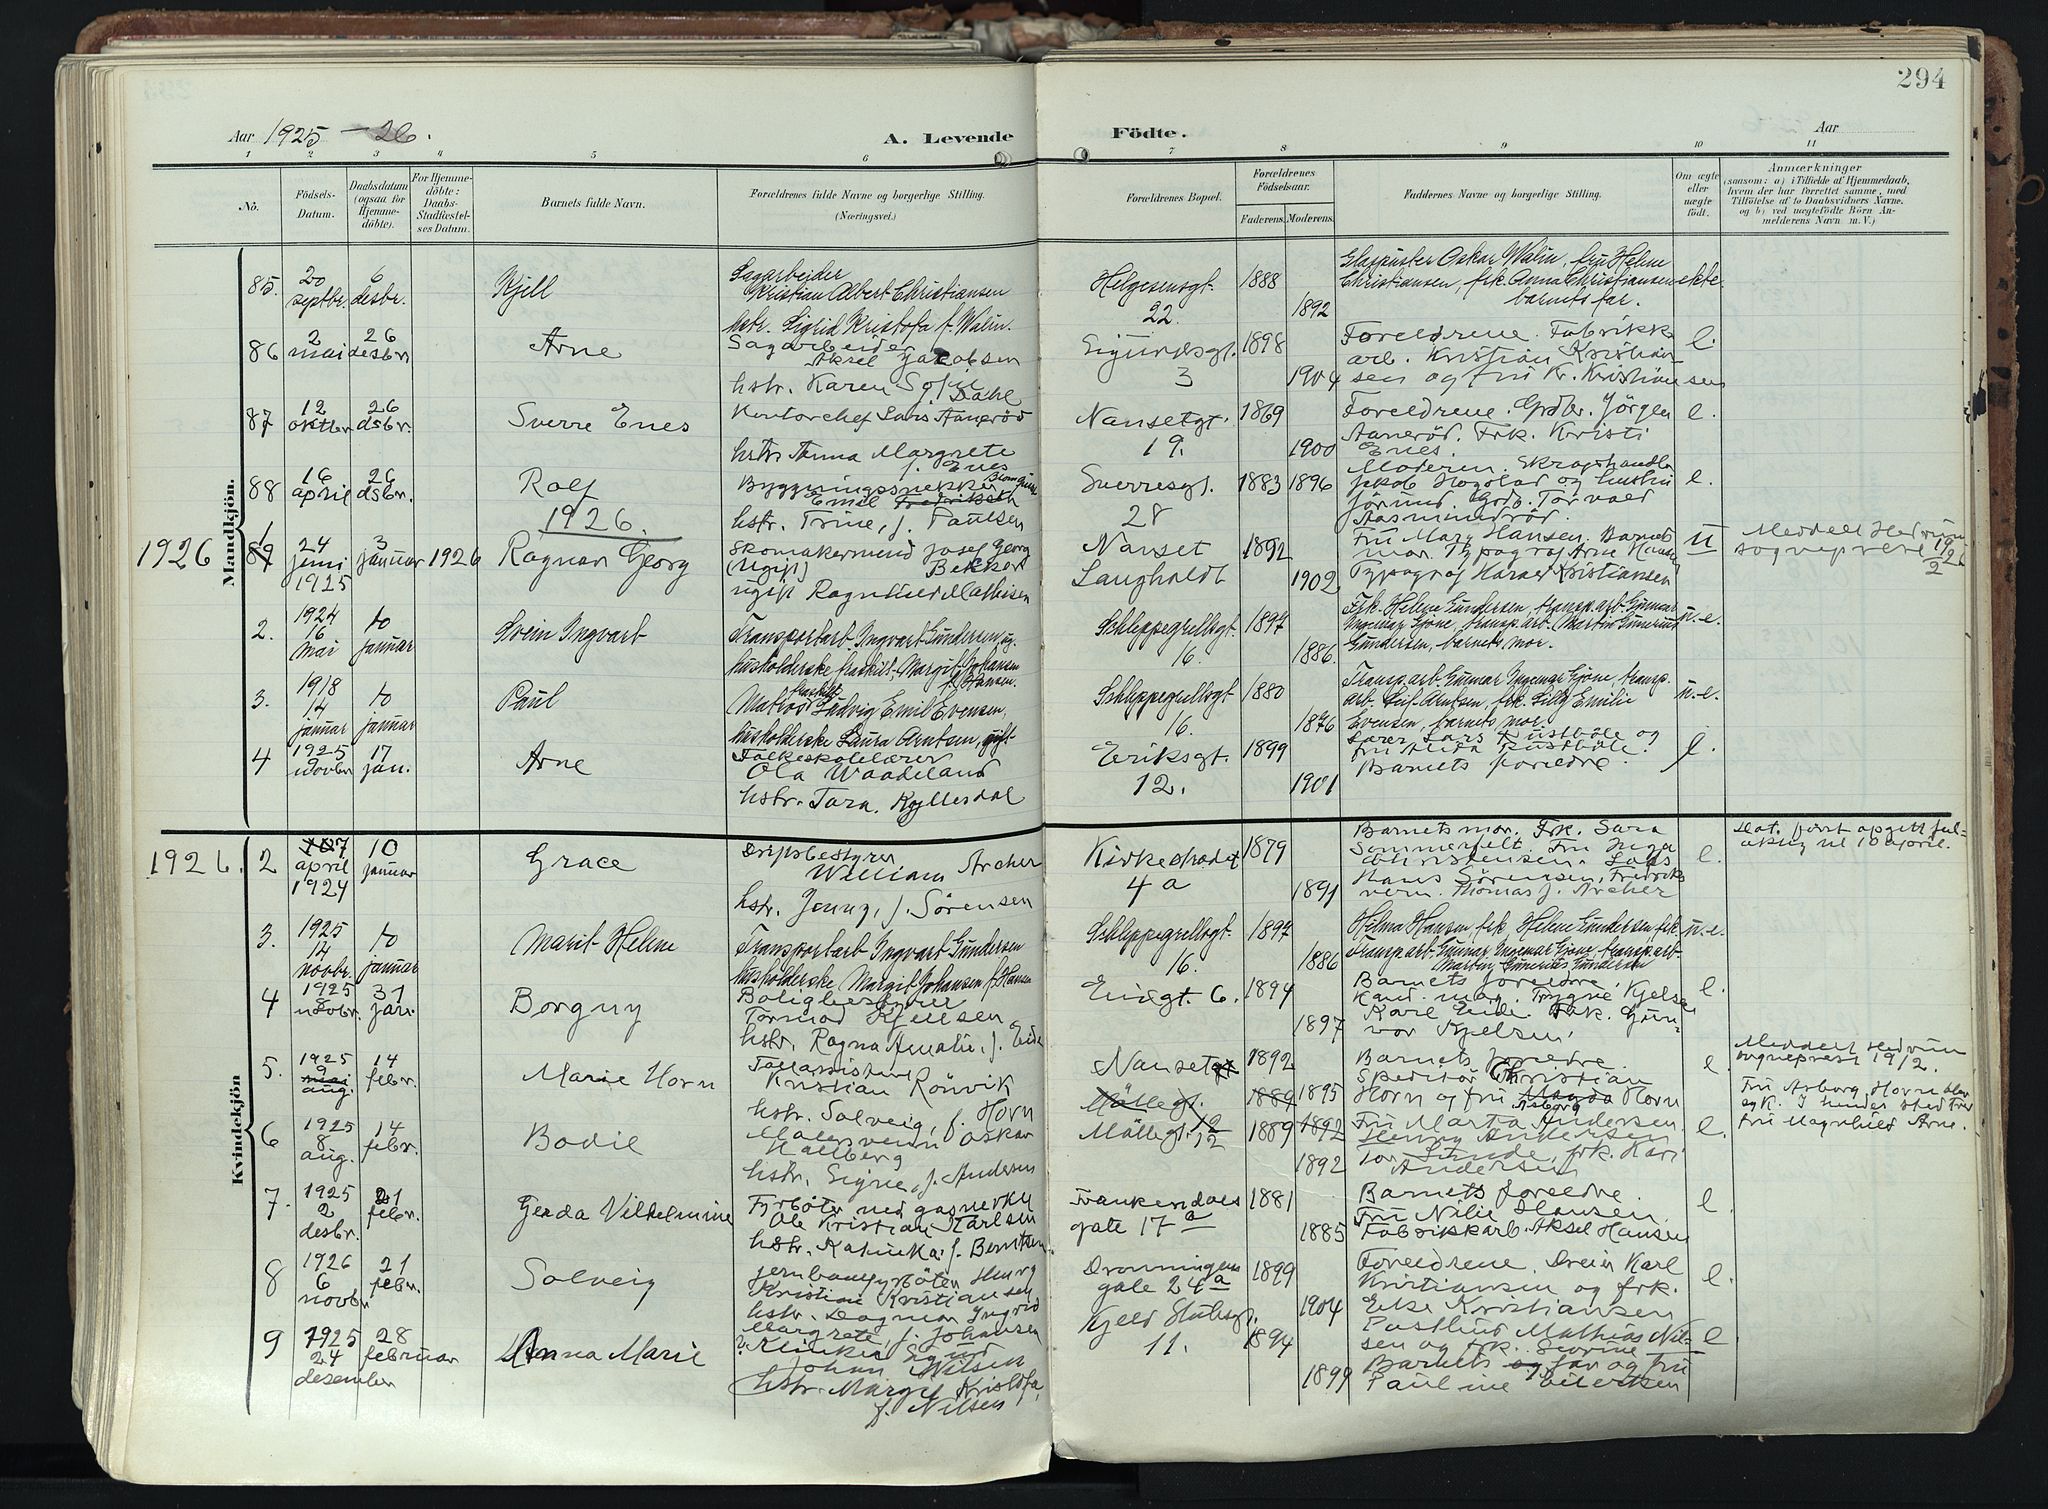 294
Aar 1925 - 26.
A. Levende Födte.
Aar
1 2 3 4 5 6 7 8 9 10 11
Nô. Födsels-Datum. Daabsdatum (ogsaa for Hjemme-döbte). For Hjemme-döbte: Daabs-Stadfæstel-ses Datum. Barnets fulde Navn. Forældrenes fulde Navne og borgerlige Stilling. (Næringsvei.) Forældrenes Bopæl. Forældrenes Födselsaar. Faderens. Moderens. Faddernes Navne og borgerlige Stilling. Om ægte eller uægte födt. Anmærkninger (saasom: a) i Tilfælde af Hjemmedaab, hvem der har forrettet samme, med Tilföielse af to Daabsvidners Navne, og b) ved uægtefödte Börn An-melderens Navn m. V.)
Mandkjön.
85. 20 septbr. 6 desbr. Kjell
Sagarbeider
Kristian Albert Christiansen
hstr. Sigrid Kristofa f. Walin.
Helgesensgt. 22. 1888 1892
Oskar Walin, fru Helene
Christiansen, frk. Anna Christiansen
barnets far.
ekte
86 2 mai 26 desbr. Arne
Sagarbeider
Aksel Jakobsen
hstr. Karen Sofie
f. Dahl
Sigurdsgt. 3 1898 1904
Foreldrene. Fabrikk
arb. Kristian Kristian-
sen og fru Kr. Kristiansen
e.
87 12 oktbr. 26 dsbr. Sverre Enes
Kontorchef Lars Aanerød
hstr. Anna Margrete
f. Enes
Nansetgt. 19. 1869 1900
Foreldrene. Grdbr. Jörgen
Aanerød. Frk. Kristi
Enes.
e.
88 16 april 26 dsbr. Rolf
Byggningssnekker
Emil
hstr. Trine, f. Paulsen
Sverresgt. 28 1883 1896
Moderen.
Jakob og hustru
Jörund. Torvald
Aasmundrød.
e.
1926.
1926 1 89 24 juni 1925 3 januar 1926 Ragnar Georg
Skomakersvend Josef Georg
(ugift) Bekker
ugift Ragnhild Mathisen
Nanset
Langholdt 1892 1902
Fru Mary Hansen. Barnets
mor. Typograf Arne Hansen
Typograf Harald Kristiansen
u
Meddelt Hedrum
sogneprest
2. 1924 16 mai 10 januar Svein Ingvart
Transportarb. Ingvart Gundersen, og
husholderske fraskilt, Margit Johansen
f. Hansen.
Schleppegrellsgt. 16. 1897 1886
Frk. Helene Gundersen, transp. arb. Gunnar
Ingemar Gjöne, transp. arb. Martin Gunerius
Gundersen, barnets mor.
u.e.
3. 1918 14 januar 10 januar Paul
fraskilt
Matros Ludvig Emil Evensen,
husholderske Laura Arntsen, gift
Schleppegrellsgt. 16. 1880 1876
Transp. arb Gunnar Ingemar Gjöne, transp.
arb. Leif Arntsen, frk. Lilly Emilie
Evensen, barnets mor.
u.e.
4 1925 9 novbr. 17 jan. Arne
Folkeskolelærer
Ola Waadeland
hstr. Tara. Kyllesdal
Eriksgt. 12. 1899 1901
Lærer Lars Rustböle og
fru Rustböle.
Barnets foreldre.
e.
Kvindekjön
1926. 2 april 1924 10 januar Grace
Driftsbestyrer
William Archer
hstr. Jenny, f. Sörensen
Kirkestrædet
4 a 1879 1891
Barnets mor. Frk. Sara
Sommerfelt. Fru Inga
Christensen. Lods
Hans Sörensen, Fredriks
vern. Thomas J. Archer
e.
Dat. først opgitt
til 10 april.
3. 1925 14 novbr. 10 januar Marit Helene
Transportarb Ingvart Gundersen
husholderske, Margit Johansen f. Hansen
Schleppegrellsgt. 16. 1897 1886
Helma Hansen frk. Helene Gundersen frk.
Transp. arb. Gunnar Ingemar Gjöne, transp. arb.
Martin Gunerius Gundersen
u.e.
4 1925 8 novbr. 31 jan. Borguy
Boligbestyrer
Tormod Kjelsen
hstr. Ragna Amalie, f. Eide
6. 1894 1897
Barnets foreldre.
Kand. mag. Trygve Kjelsen
Karl Eide. Frk. Gun-
vor Kjelsen.
e.
5. 1925 9 mai aug. 14 febr. Marie Horn
Tollassistent
Kristian Rönvik
hstr. Solveig, f. Horn
Nanset
Möllegt. 12 1892 1889 1895
Barnets foreldre.
Speditör Christian
Horn og fru Magda Horn
Asborg
e.
Meddelt Hedrum
sogneprest 19/2.
Fru Asborg Horn
fru Magnhild Arne.
6 1925 8 aug. 14 febr. Bodil
Malersvenn Oskar
Hallberg
hstr. Signe, f. Andersen
Möllegt. 12 1889 1892 1892
Fru Marta Andersen
Henny Andersen
Tor Lunde, frk. Kari
Andersen
e.
7. 1925 2 desbr. 21 febr. Gerda Vilhelmine
Fyrböter ved gasverket
Ole Kristian Karlsen
hstr. Katinka f. Berntsen
Frankendals
gate 17a 1881 1885
Barnets foreldre.
Fru Nilie Hansen.
Fabrikkarb. Aksel Hansen
e.
8 1926 6 novbr. 21 febr. Solveig
Jernbanefyrböter
Kristian Kristiansen
hstr. Dagmar Ingrid
Margrete, f. Johansen
Dronningens
gate 24a 1899 1904
Foreldrene. Dreier Karl
Kristiansen og frk.
Else Kristiansen
e.
9 1925 24 desember 28 februar Anna Marie
Sigurd
Johan Nilsen
hstr. Margit Kristofa,
f. Nilsen
Kjeld Stubsgt.
11. 1894 1899
Postbud Mathias Nil-
sen og frk. Severine
Barnets far og fru
Pauline Eilertsen
e